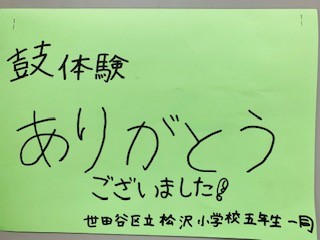 鼓体験
ありがとう
ございました!
世田谷区立松沢小学校五年生一同